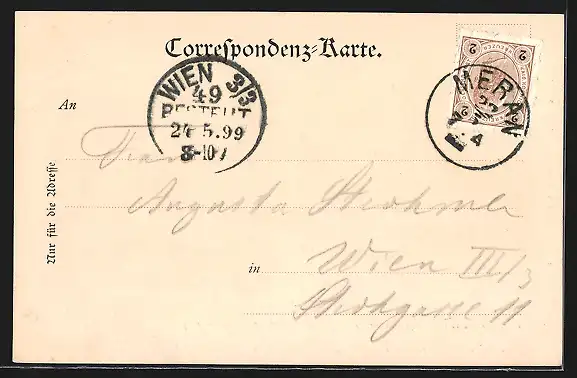 Correspondenz-Karte.
WIEN 3/3
49
BESTELLT
24.5.99
8-10V
2 KREUZER 2
MERAN
An
Frau
Augusta
in Wien III/3
11
Nur für die Adresse